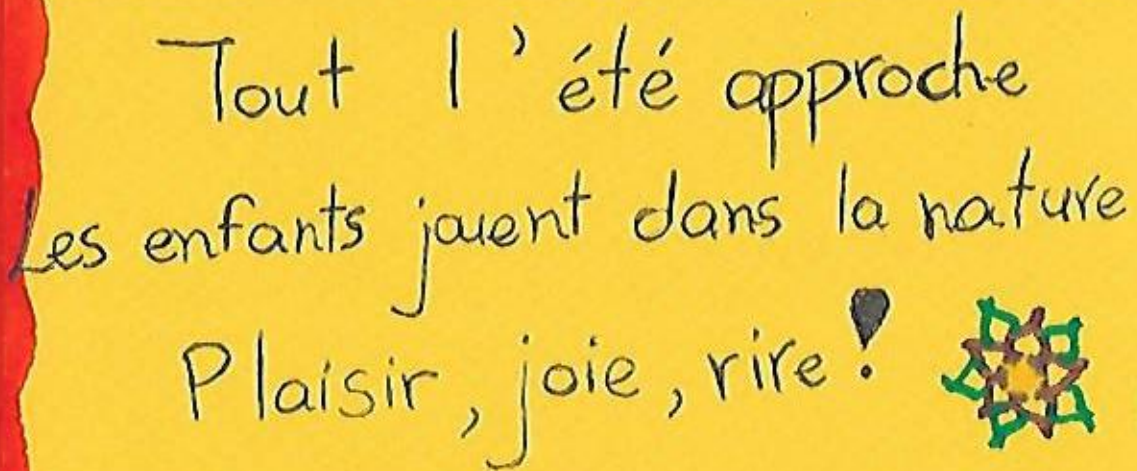 Tout l'été approche
Les enfants jouent dans la nature
Plaisir, joie, rire!